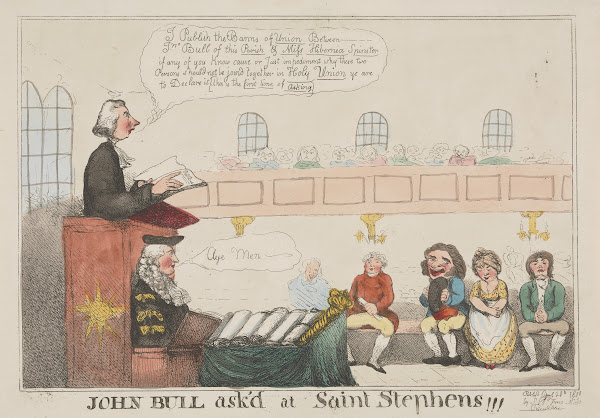 I Publish the Banns of Union Between
Jnº Bull of this Parish & Miss Hibernia Spinster
if any of you Know cause or Just impediment why these two
Persons should not be join'd together in Holy Union ye are
to Declare it this is the first time of Asking
Aye Men
JOHN BULL ask'd at Saint Stephens!!!